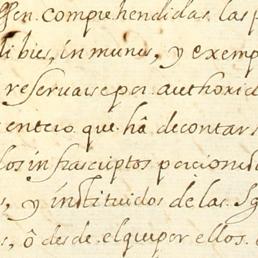 ssen. comprehendidas. las p
libies, in munes, y exemp
reservarse por authorid
entero que hâ decontar s
los infrascriptos percionid
s, y instituidos de las Sg
s, ô desde. el que por ellos.